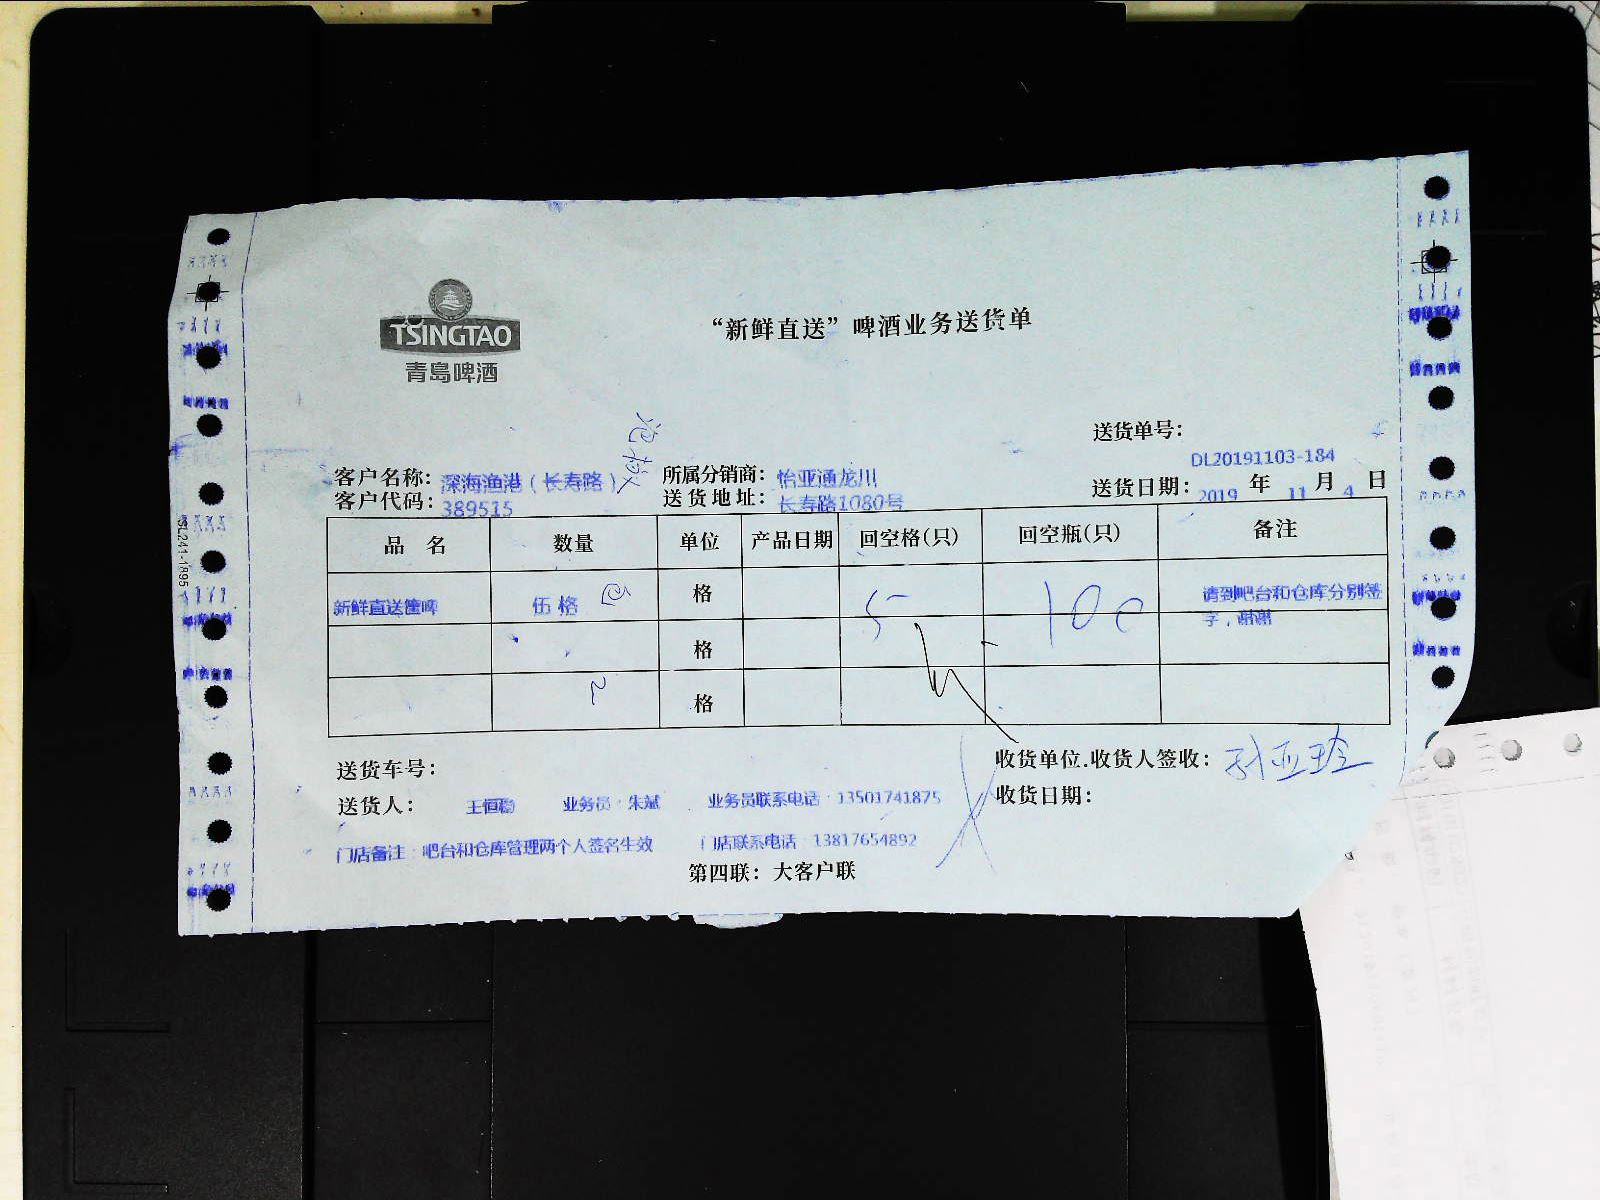 TSINGTAO
青島啤酒
“新鲜直送”啤酒业务送货单
送货单号：
DL20191103-184
客户名称：深海渔港（长寿路） 所属分销商：怡亚通龙川 送货日期：2019 年 11 月 4 日
客户代码：389515 送货地址：长寿路1080号
品 名 数量 单位 产品日期 回空格(只) 回空瓶(只) 备注
新鲜直送箱啤 伍格 格 5 100 请到吧台和仓库分别签
字，谢谢
格
2 格
送货车号： 收货单位.收货人签收：孙亚玲
送货人： 业务员：朱斌 业务员联系电话：13501741875 收货日期：
门店备注：吧台和仓库管理两个人签名生效 门店联系电话：13817654892
第四联：大客户联
SL241-1895